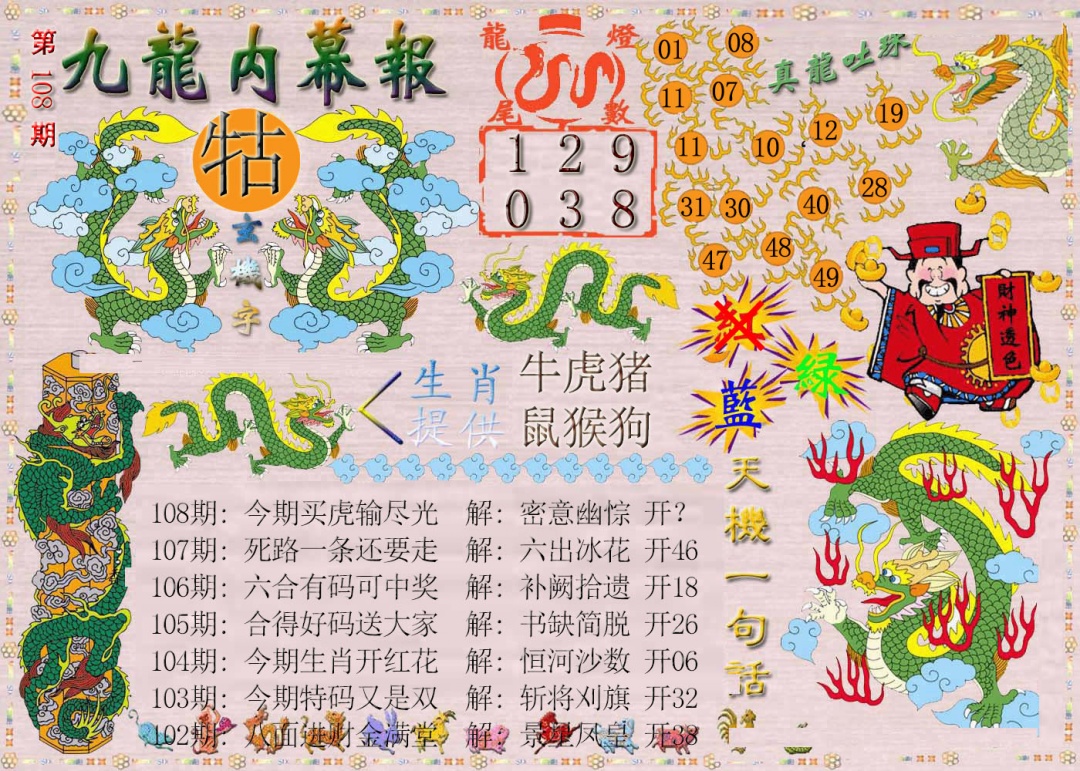 第108期
九龍内幕報
龍燈
尾數
1 2 9
0 3 8
真龍吐珠
01 08
11 07
11 10 12 19
31 30 40 28
47 48 49
牯
玄機字
紅
綠
藍
財神透色
生肖
提供
牛虎猪
鼠猴狗
天機一句話
108期：今期买虎输尽光 解：密意幽悰 开？
107期：死路一条还要走 解：六出冰花 开46
106期：六合有码可中奖 解：补阙拾遗 开18
105期：合得好码送大家 解：书缺简脱 开26
104期：今期生肖开红花 解：恒河沙数 开06
103期：今期特码又是双 解：斩将刈旗 开32
102期：八面进财金满堂 解：景星凤皇 开38